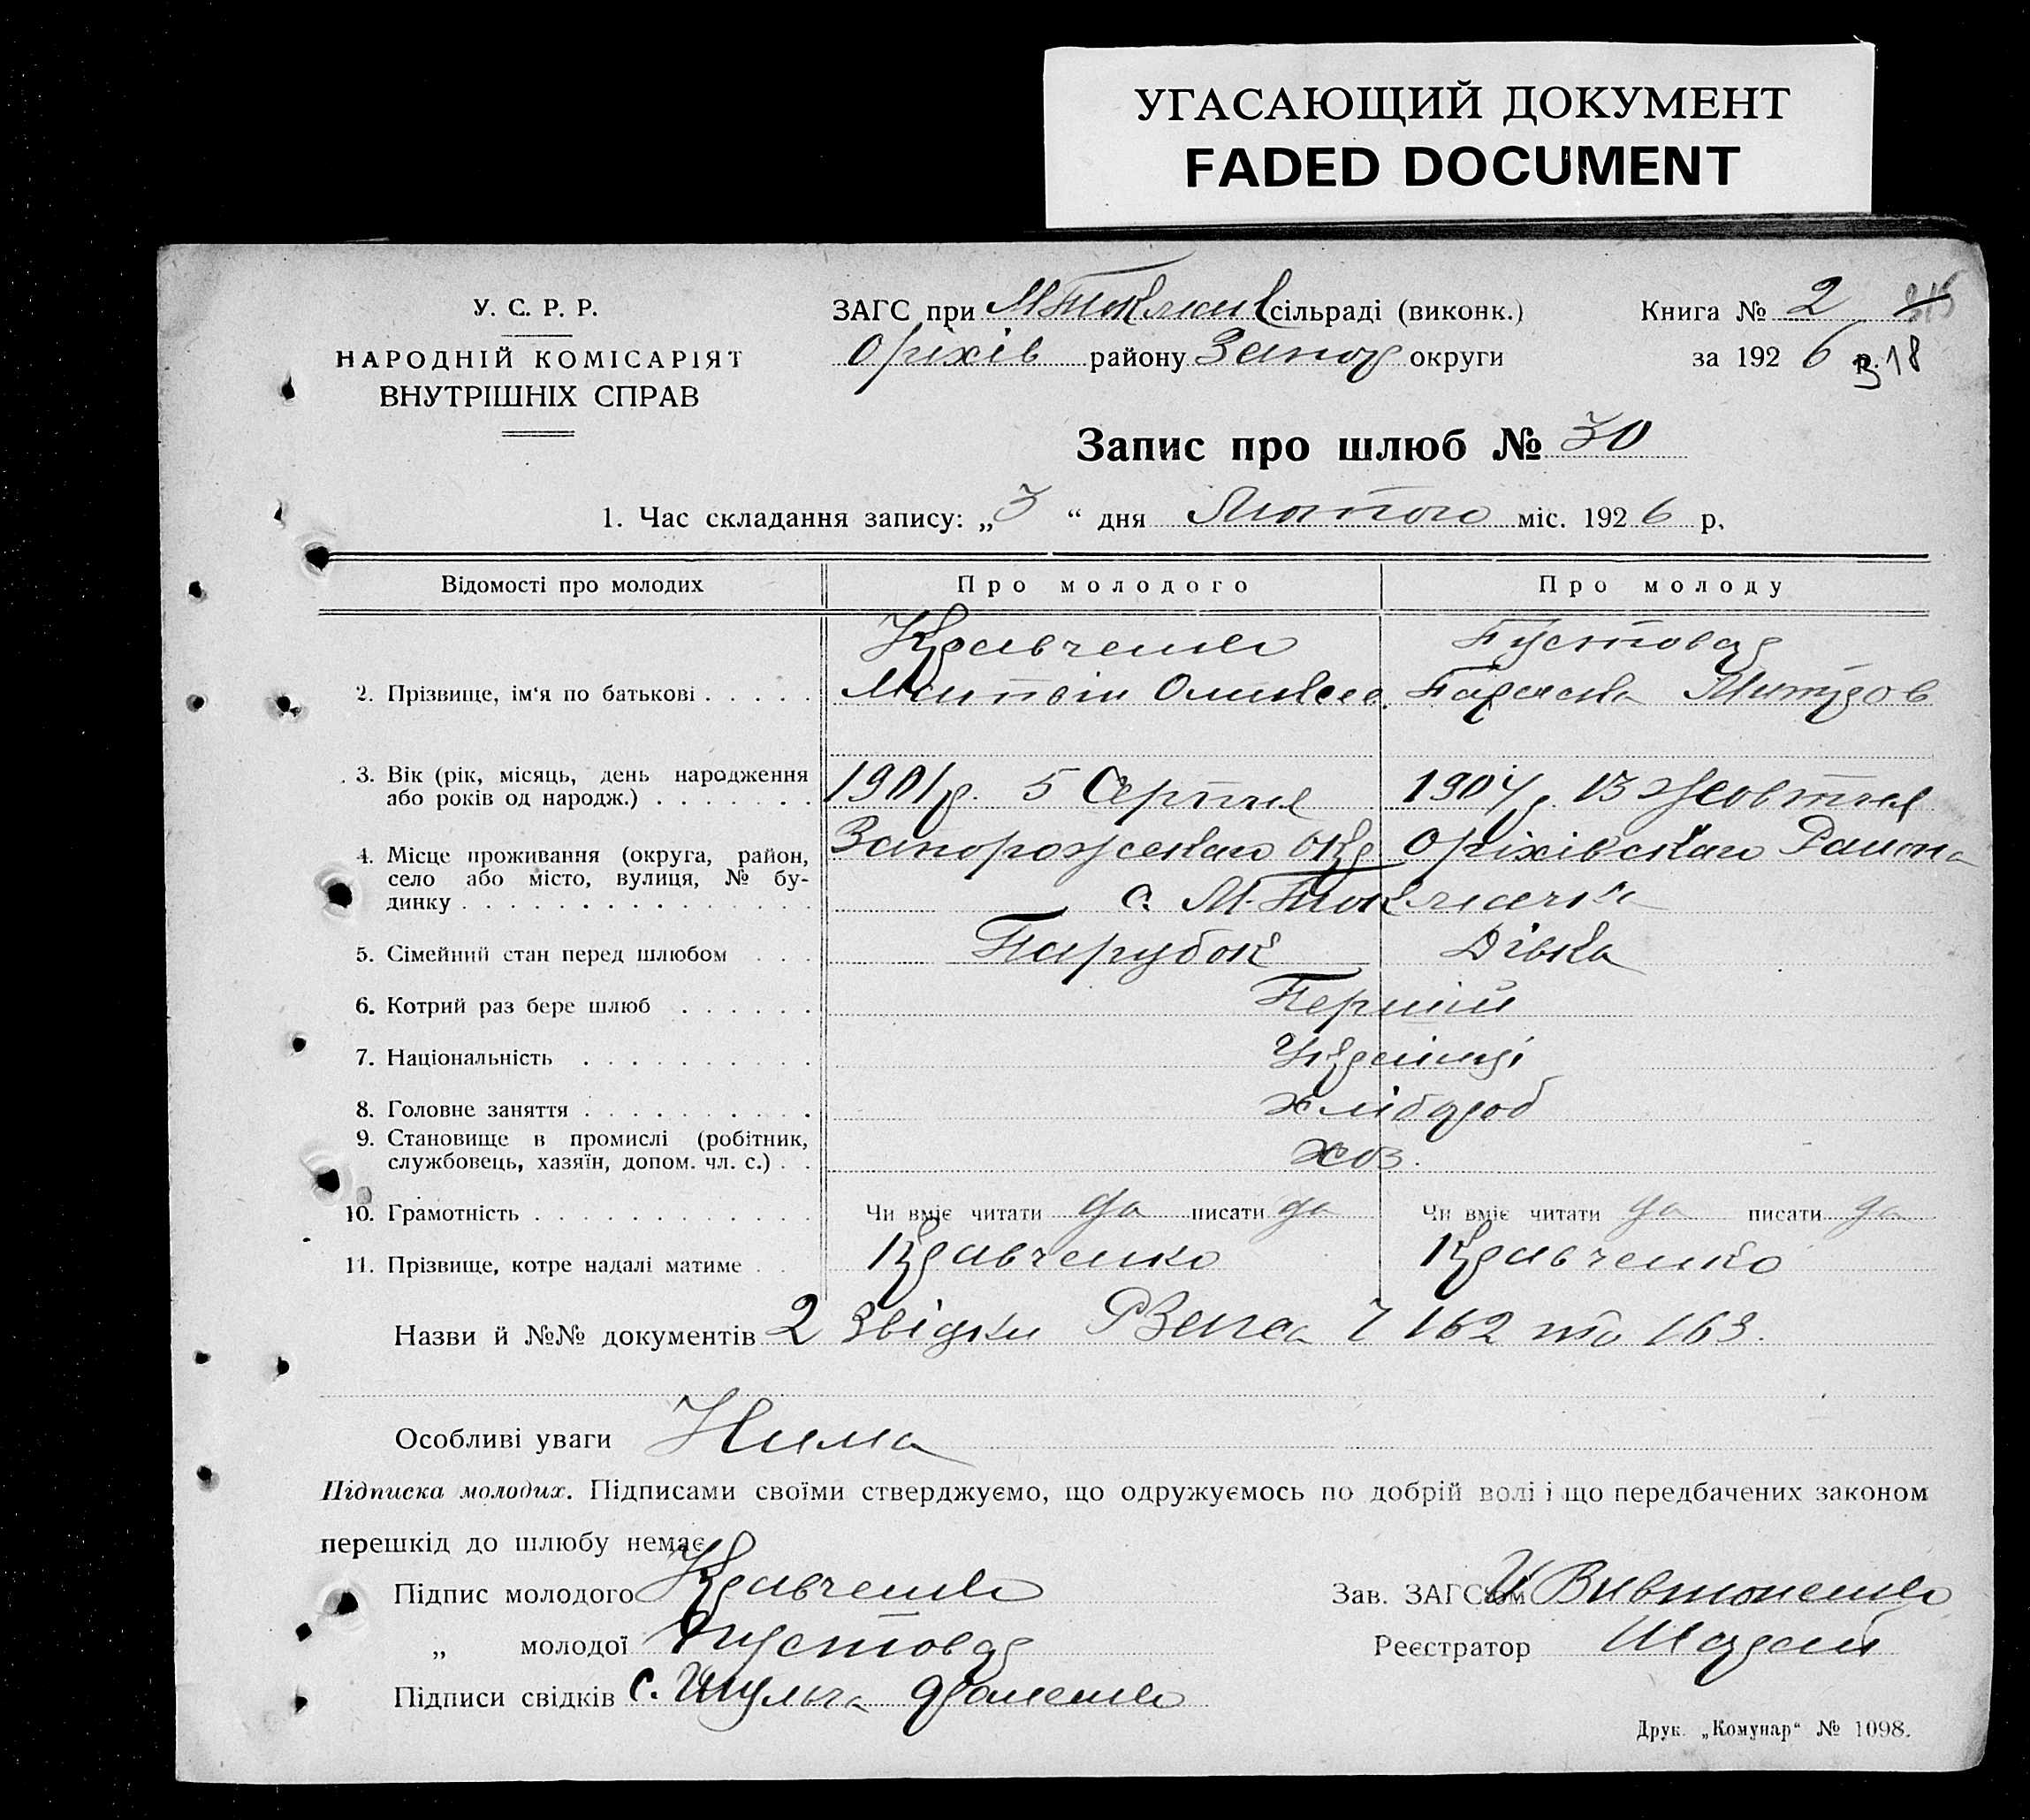 УГАСАЮЩИЙ ДОКУМЕНТ
FADED DOCUMENT
У. С. Р. Р.
НАРОДНІЙ КОМІСАРІЯТ
ВНУТРІШНІХ СПРАВ
ЗАГС при М Токмац сільраді (виконк.)
Оріхів району Запор округи
Книга № 2
за 1926 р. 318
Запис про шлюб № 30
1. Час складання запису: „3“ дня Лютого міс. 1926 р.
Відомості про молодих Про молодого Про молоду
Кравченко Пустовар
2. Прізвище, ім'я по батькові Матвій Олексєв. Параска Митров
3. Вік (рік, місяць, день народження 1901 р. 5 Серпня 1904 р. 13 Жовтня
або років од народж.)
4. Місце проживання (округа, район, Запорожскаго Окр Оріхівскаго Района
село або місто, вулиця, № бу-
динку с. М-Токмачка
5. Сімейний стан перед шлюбом Парубок Дівка
6. Котрий раз бере шлюб Перший
7. Національність Українці
8. Головне заняття хлібороб
9. Становище в промислі (робітник,
службовець, хазяїн, допом. чл. с.) хоз.
10. Грамотність Чи вміє читати да писати да Чи вміє читати да писати да
11. Прізвище, котре надалі матиме Кравченко Кравченко
Назви й №№ документів 2 Звідки 162 та 163.
Особливі уваги Нима
Підписка молодих. Підписами своїми стверджуємо, що одружуємось по добрій волі і що передбачених законом
перешкід до шлюбу немає
Підпис молодого Кравченко
Зав. ЗАГСом И Вивтоненко
„ молодої Пустовар
Реєстратор Шарай
Підписи свідків С. Шульга
Друк. „Комунар“ № 1098.